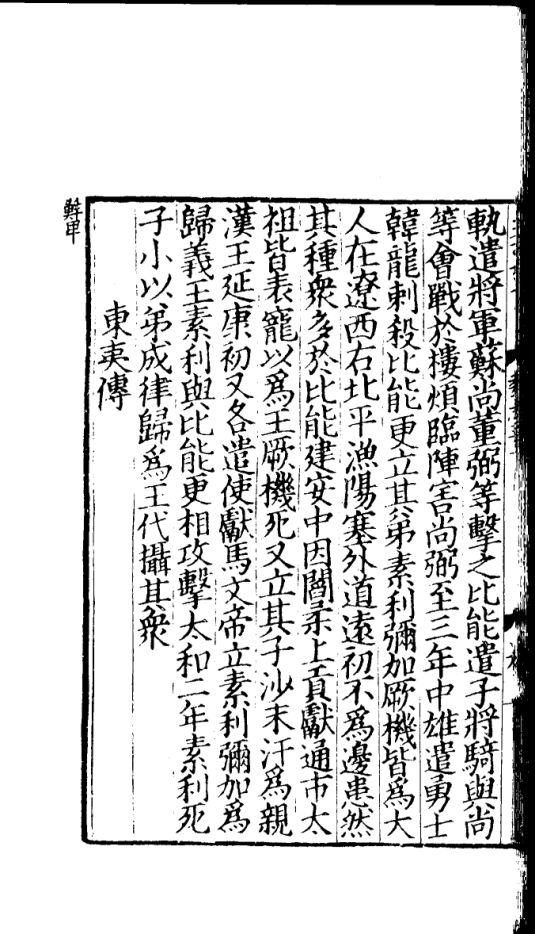 軌遣將軍蘇尚董弼等擊之比能遣子將騎與尚
等會戰於樓煩臨陣害尚弼至三年中雄遣勇士
韓龍刺殺比能更立其弟素利彌加厥機皆為大
人在遼西右北平漁陽塞外道遠初不為邊患然
其種衆多於比能建安中因閻柔上貢獻通市太
祖皆表寵以為王厥機死又立其子沙末汗為親
漢王延康初又各遣使獻馬文帝立素利彌加為
歸義王素利與比能更相攻擊太和二年素利死
子小以弟成律歸為王代攝其衆
東夷傳
鮮卑